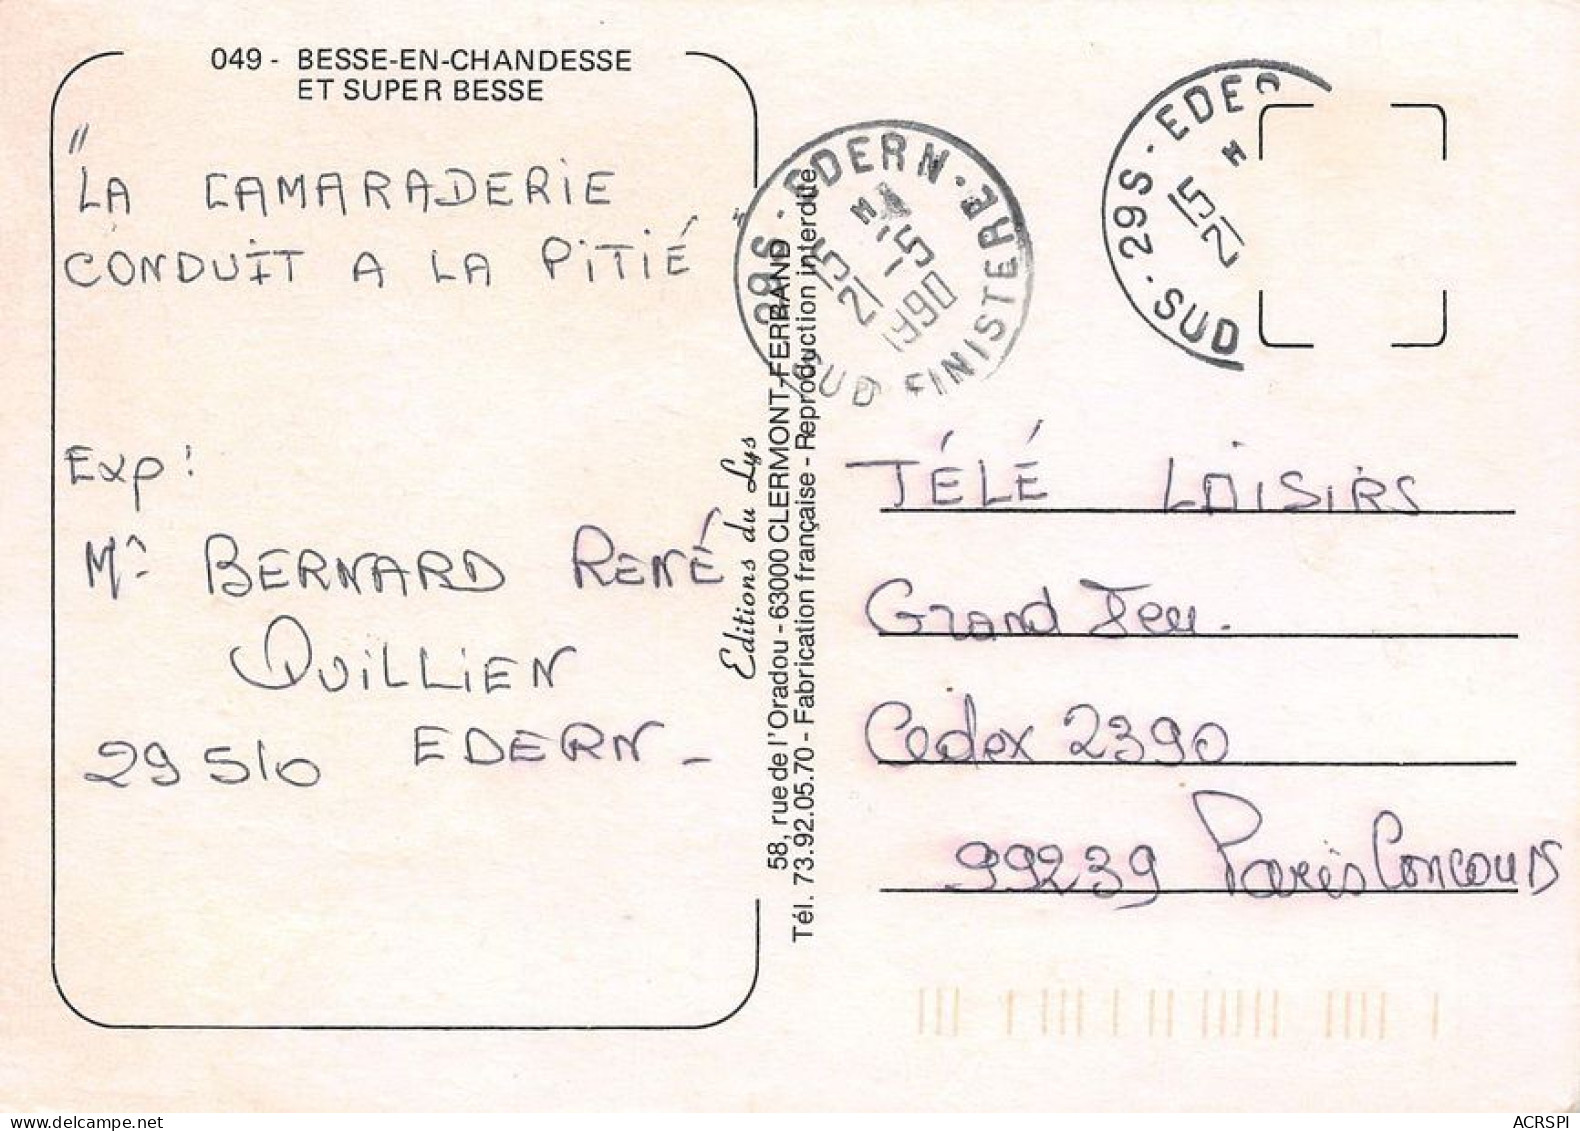 049 - BESSE-EN-CHANDESSE
ET SUPER BESSE
"LA CAMARADERIE
CONDUIT A LA PITIÉ"
Exp:
Mr BERNARD RENÉ
QUILLIEN
29510 EDERN_
Editions du Lys
58, rue de l'Oradou - 63000 CLERMONT-FERRAND
Tél. 73.92.05.70 - Fabrication française - Reproduction interdite
29S · EDERN · SUD FINISTERE
15 H
21 -5
1990
29S · EDER
· SUD
15 H
21
TÉLÉ LOISIRS
Grand Jeu.
Cedex 2390
99239 Paris Concours
ACRSPI